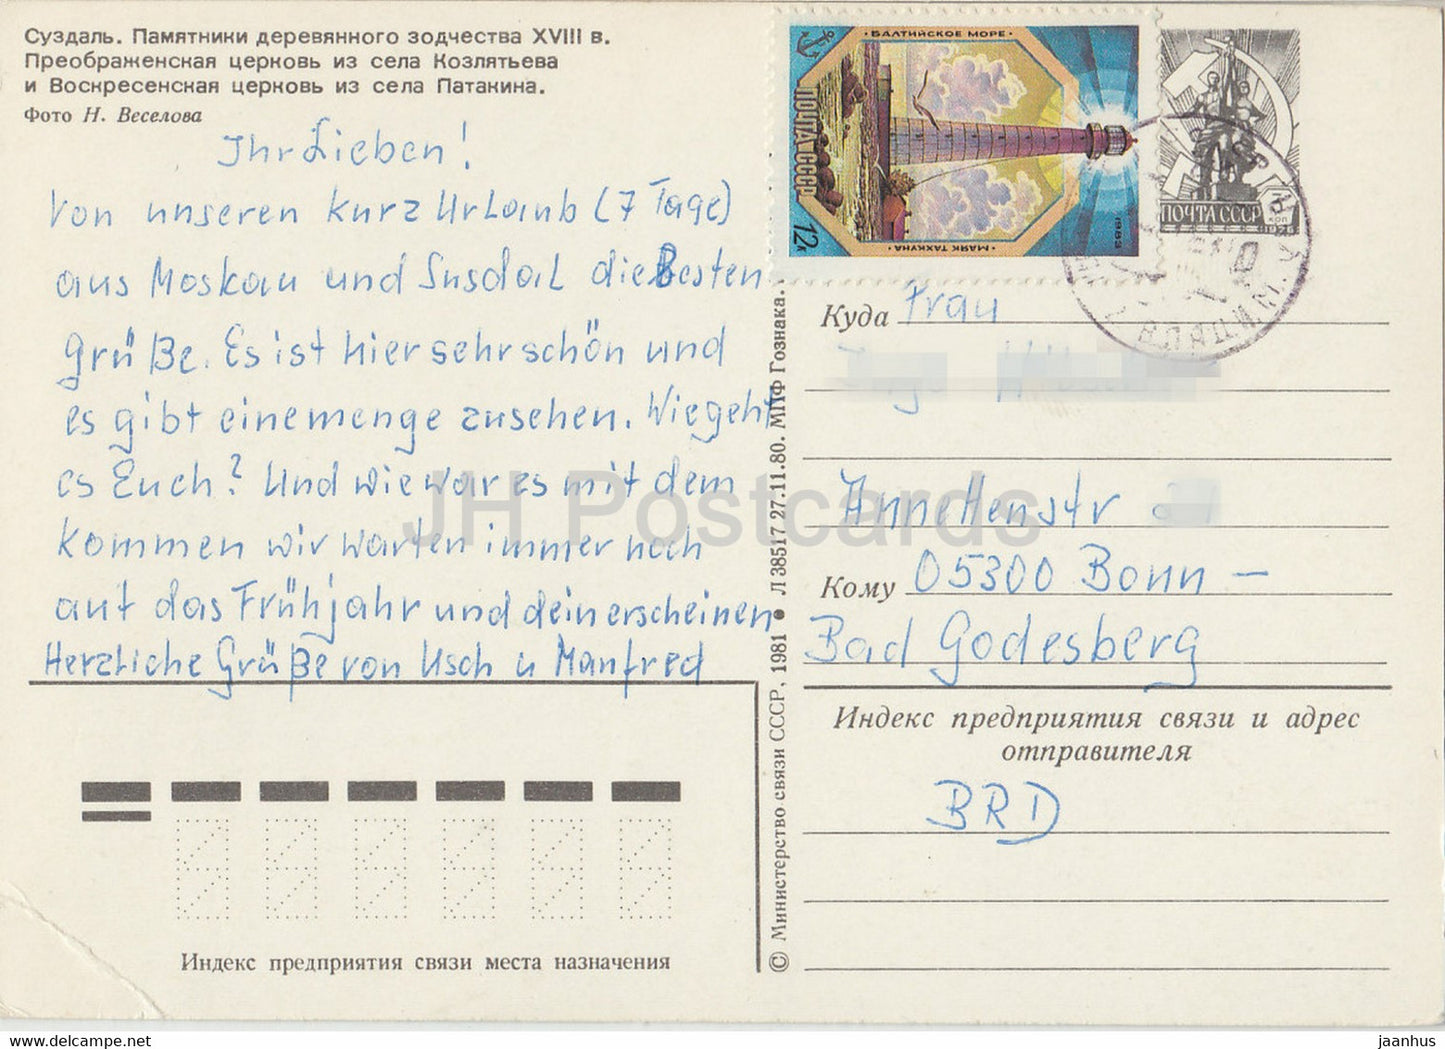 Суздаль. Памятники деревянного зодчества XVIII в.
Преображенская церковь из села Козлятьева
и Воскресенская церковь из села Патакина.
Фото Н. Веселова
Ihr Lieben!
Von unseren kurz Urlaub (7 Tage)
aus Moskau und Susdal die Besten
Grüße. Es ist hier sehr schön und
es gibt eine menge zu sehen. Wie geht
es Euch? Und wie war es mit dem
kommen wir warten immer noch
auf das Frühjahr und dein erscheinen
Herzliche Grüße von Usch u Manfred
Индекс предприятия связи места назначения
© Министерство связи СССР, 1981 ● Л 38517 27.11.80. МПФ Гознака.
БАЛТИЙСКОЕ МОРЕ
ПОЧТА СССР
12к
МАЯК ТАХКУНА
1983
ПОЧТА СССР
коп
Куда Frau
Annettenstr
Кому 05300 Bonn –
Bad Godesberg
Индекс предприятия связи и адрес
отправителя
BRD
JH Postcards
www.delcampe.net
jaanhus